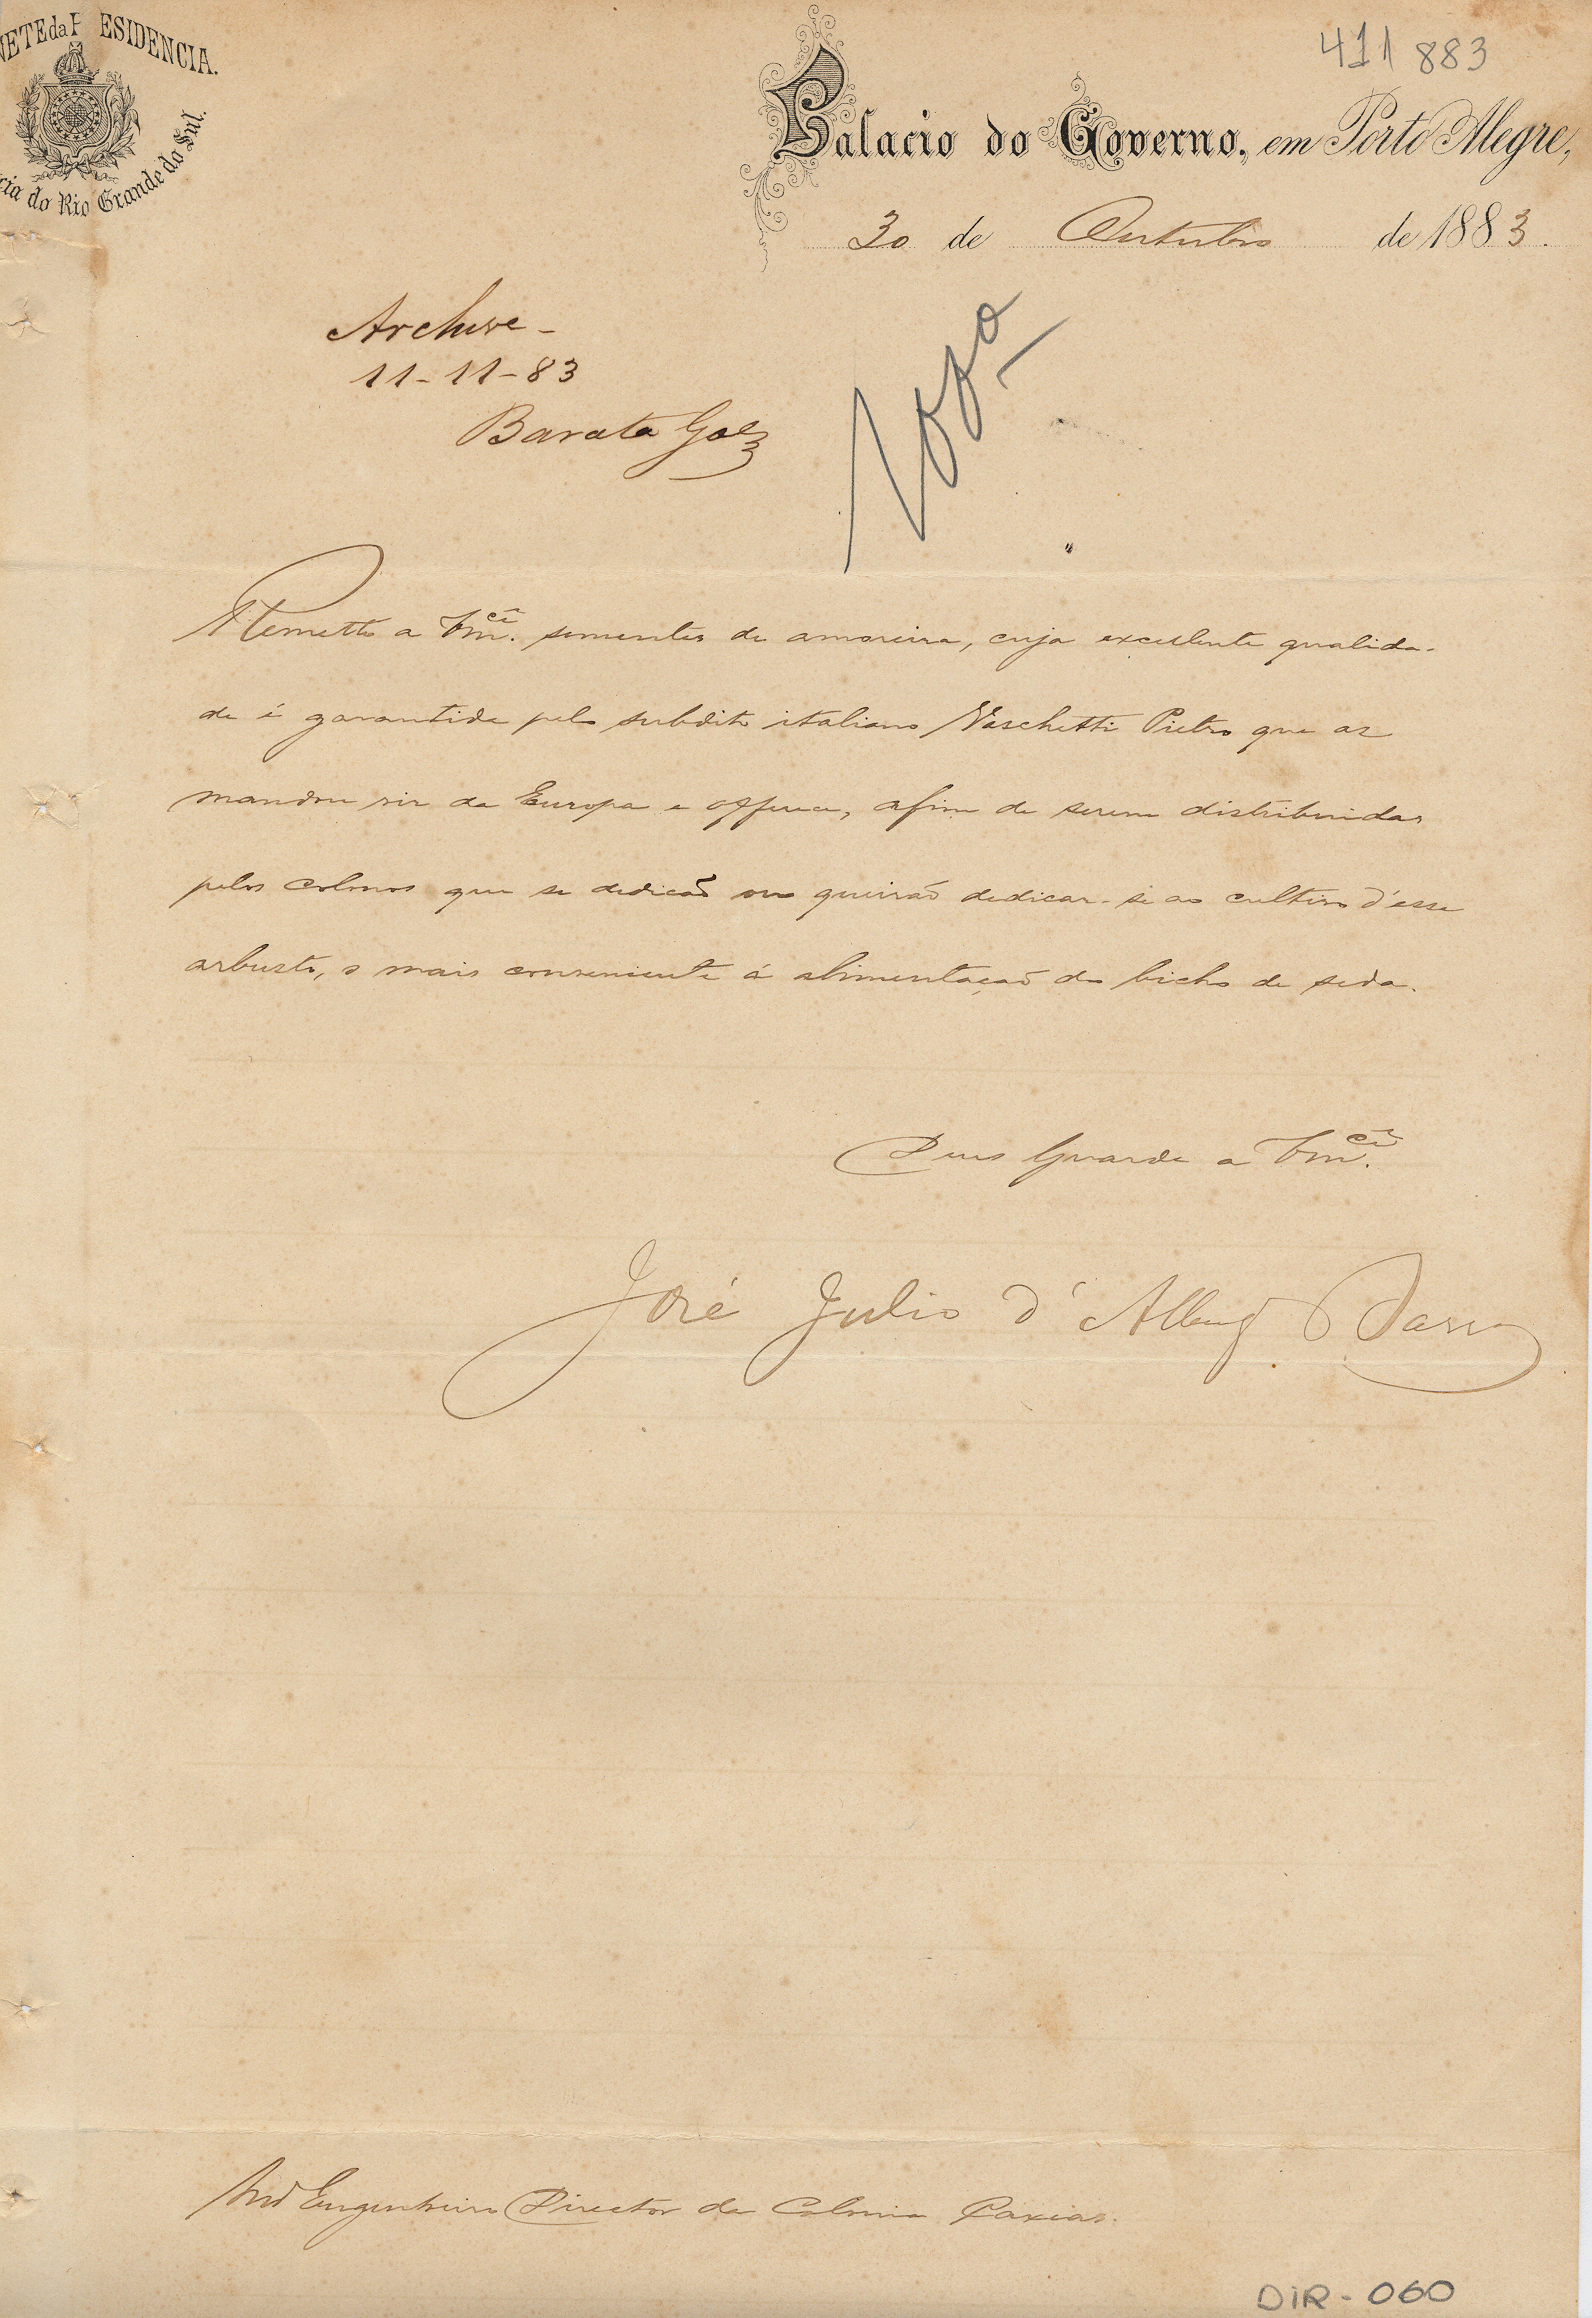 NETE da P ESIDENCIA.
cia do Rio Grande do Sul.
411 883
Palacio do Governo, em Porto Alegre,
30 de Outubro de 1883.
Archive -
11-11-83
Barata Goes
Remetto a Vm.cê sementes de amoreira, cuja excellente qualida-
de é garantida pelo subdito italiano Vaschetti Pietro que as
mandou vir da Europa e offerece, afim de serem distribuidas
pelos colonos que se dedicão ou queirão dedicar-se ao cultivo d'esse
arbusto, o mais conveniente á alimentação do bicho de seda.
Deus Guarde a Vm.cê
José Julio d'Albuq Barros
Engenheiro Director da Colonia Caxias.
DIR-060